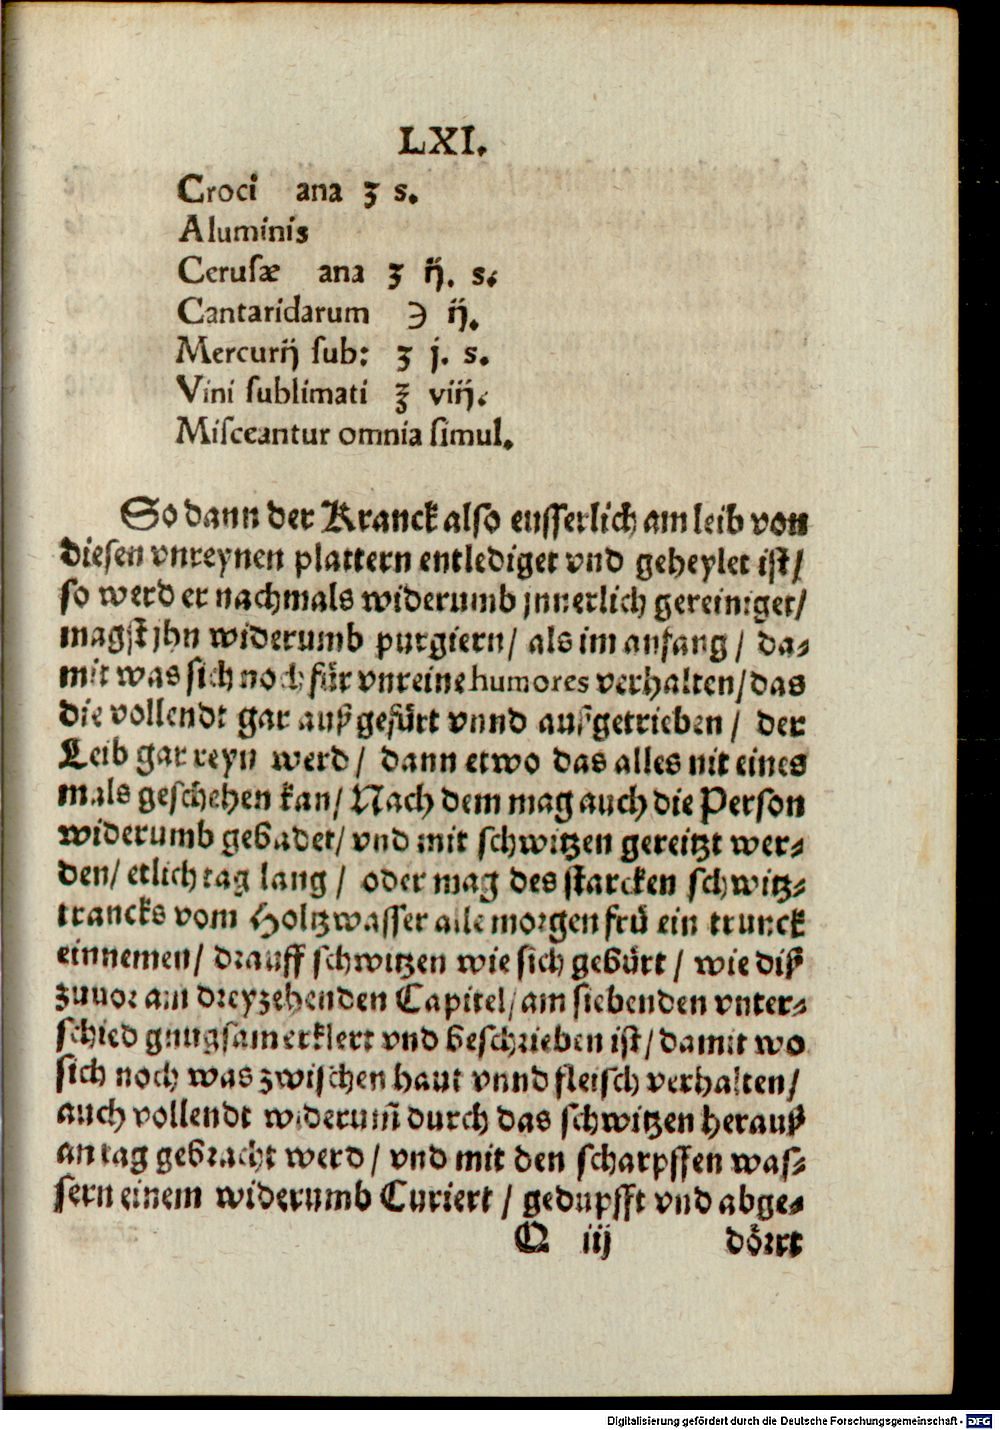 LXI.
Croci ana ʒ s.
Aluminis
Cerusæ ana ʒ ij. s.
Cantaridarum ℈ ij.
Mercurij sub: ʒ j. s.
Vini sublimati ℥ viij.
Misceantur omnia simul.
So dann der Kranck also eusserlich am leib von
diesen vnreynen plattern entlediget vnd geheylet ist/
so werd er nachmals widerumb jnnerlich gereiniget/
magst jhn widerumb purgiern/ als im anfang/ da-
mit was sich noch für vnreine humores verhalten/ das
die vollendt gar auß gefürt vnnd außgetrieben/ der
Leib gar reyn werd/ dann etwo das alles nit eines
mals geschehen kan/ Nach dem mag auch die Person
widerumb gebadet/ vnd mit schwitzen gereitzt wer-
den/ etlich tag lang/ oder mag des starcken schwitz-
trancks vom Holtzwasser alle morgen frü ein trunck
einnemen/ drauff schwitzen wie sich gebürt/ wie diß
zuuor am dreyzehenden Capitel/ am siebenden vnter-
schied gnugsam erklert vnd beschrieben ist/ damit wo
sich noch was zwischen haut vnnd fleisch verhalten/
auch vollendt widerum̃ durch das schwitzen herauß
an tag gebracht werd/ vnd mit den scharpffen was-
sern einem widerumb Curiert/ gedupfft vnd abge-
Q iij dörrt
Digitalisierung gefördert durch die Deutsche Forschungsgemeinschaft - DFG